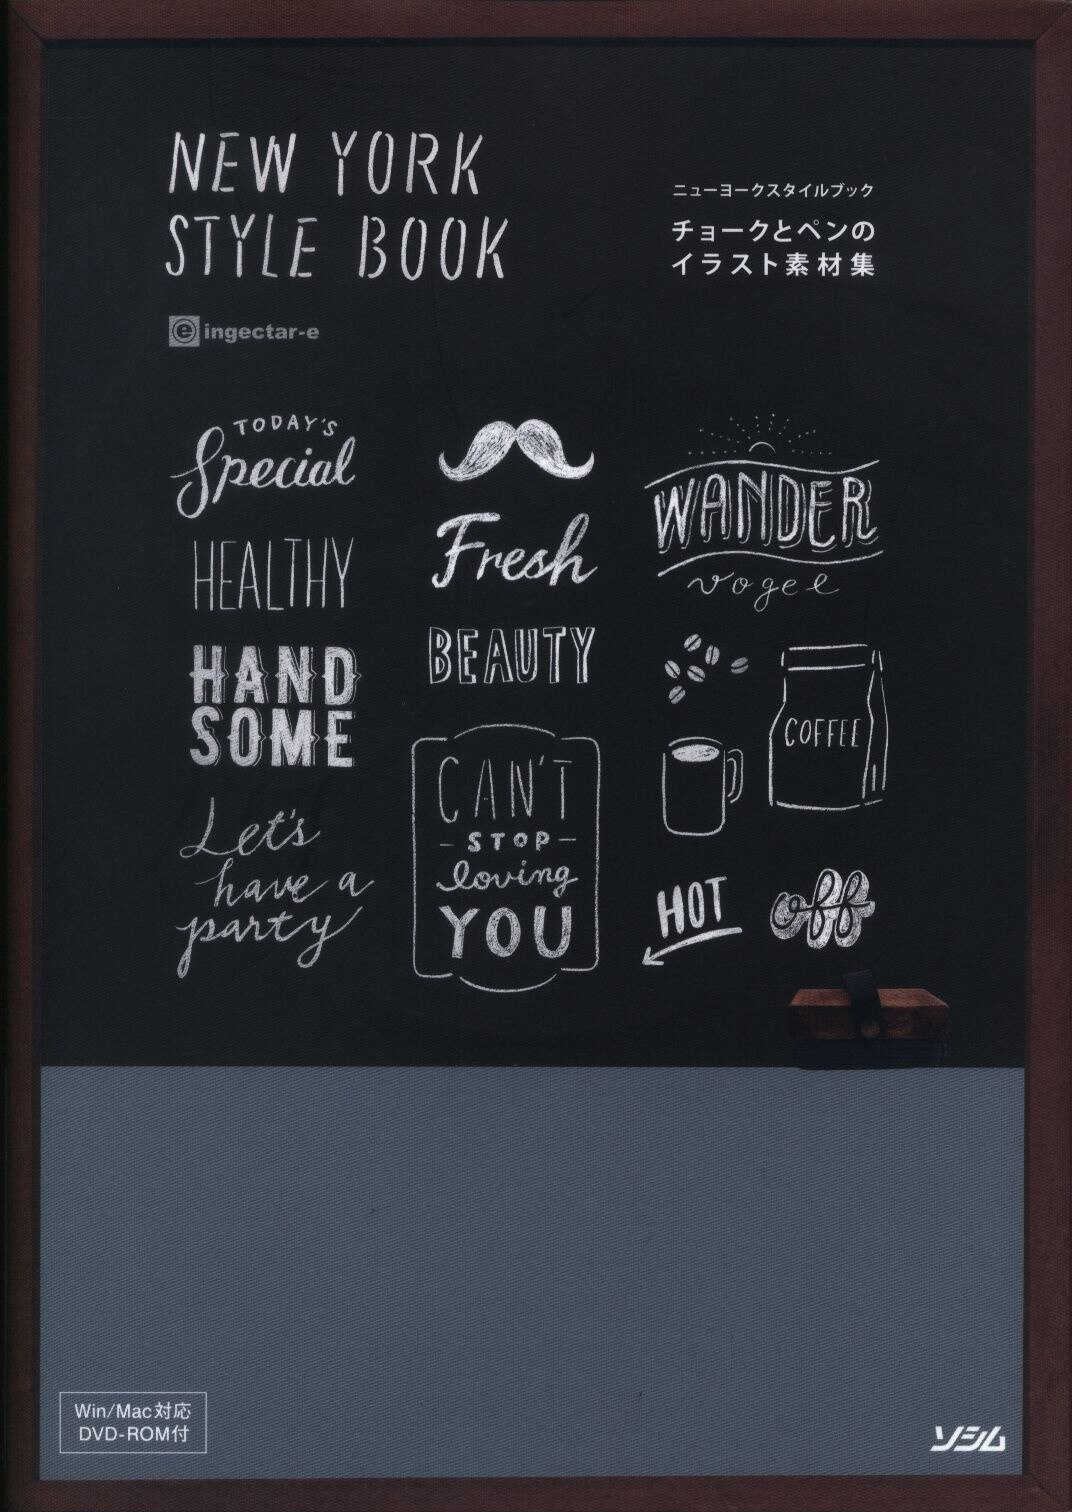 NEW YORK
STYLE BOOK
ニューヨークスタイルブック
チョークとペンの
イラスト素材集
e ingectar-e
TODAY'S
Special
HEALTHY
HAND
SOME
Let's
have a
party
Fresh
BEAUTY
CAN'T
- STOP -
loving
YOU
WANDER
vogel
COFFEE
HOT
off
Win/Mac対応
DVD-ROM付
ソシム